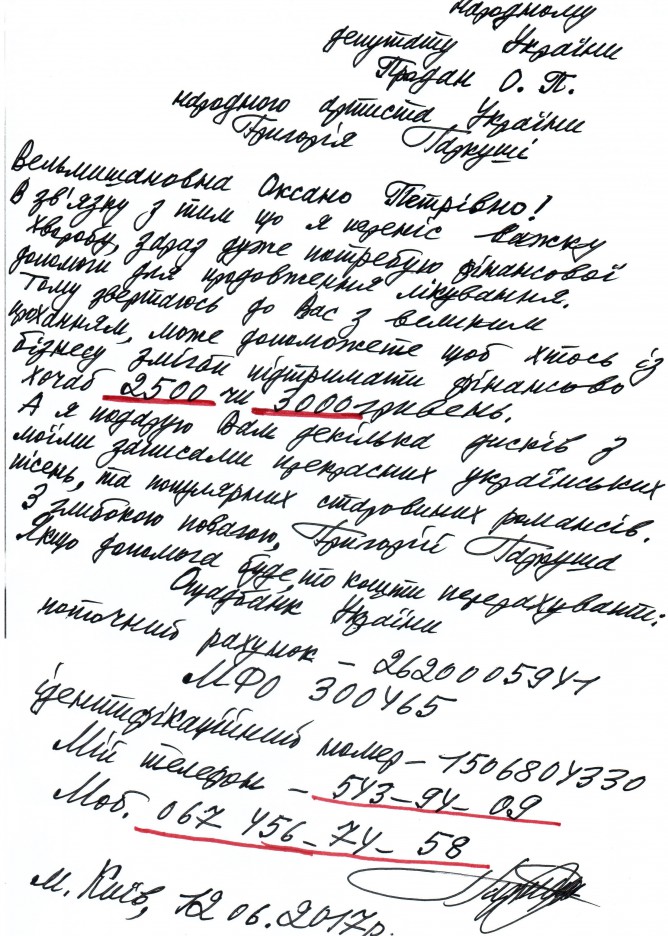 народному
депутату України
Продан О. П.
народного артиста України
Григорія Гаркуші
Вельмишановна Оксано Петрівно!
В зв'язку з тим що я переніс важку
хворобу, зараз дуже потребую фінансової
допомоги для продовження лікування.
Тому звертаюсь до Вас з великим
проханням, може допоможете щоб хтось із
бізнесу зміг би підтримати фінансово
хочаб 2500 чи 3000 гривень.
А я подарую Вам декілька дисків з
моїми записами прекрасних українських
пісень, та популярних старовинних романсів.
З глибокою повагою, Григорій Гаркуша
Якщо допомога буде, то кошти перерахувати:
Ощадбанк України
поточний рахунок – 2620005941
МФО 300465
ідентифікаційний номер – 1506804330
Мій телефон – 543–94–09
Моб. 067 456–74–58
м. Київ, 12 06. 2017р.